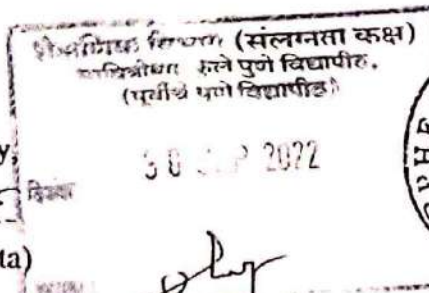 शैक्षणिक विभाग (संलग्नता कक्ष)
सावित्रीबाई फुले पुणे विद्यापीठ.
(पूर्वीचे पुणे विद्यापीठ)
y,
30 SEP 2022
दिनांक
ta)